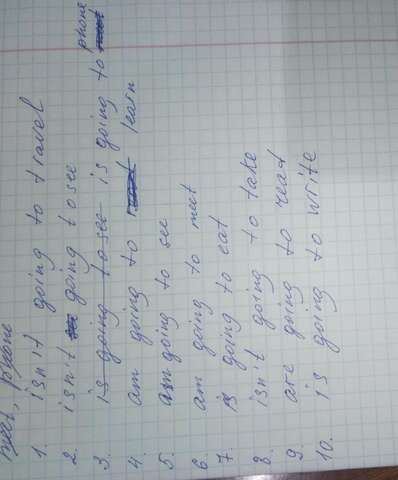 meet, phone
1. isn't going to travel
2. isn't going to see
3. is going to see is going to phone
4. am going to learn
5. am going to see
6. am going to meet
7. is going to eat
8. isn't going to take
9. are going to read
10. is going to write